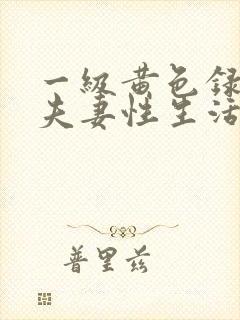 一级黄色录
夫妻性生活
普里兹